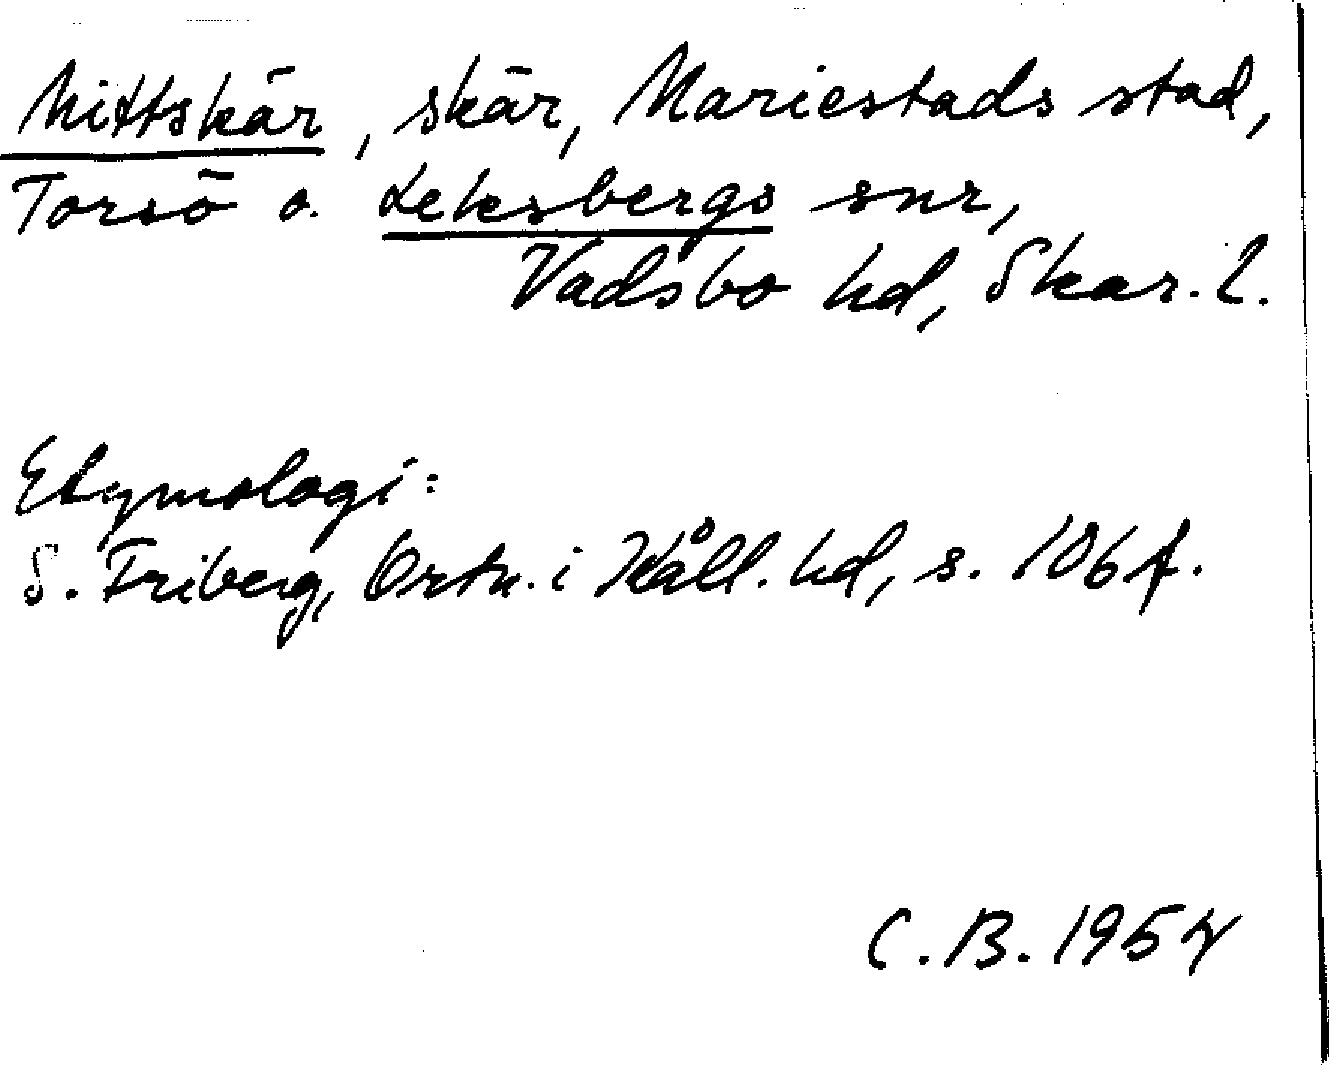 Mittskär, skär, Mariestads stad,
Torsö o. Leksbergs snr,
Vadsbo hd, Skar. l.
Etymologi:
S. Friberg, Ortn. i Kåll. hd, s. 106 f.
C. B. 1957